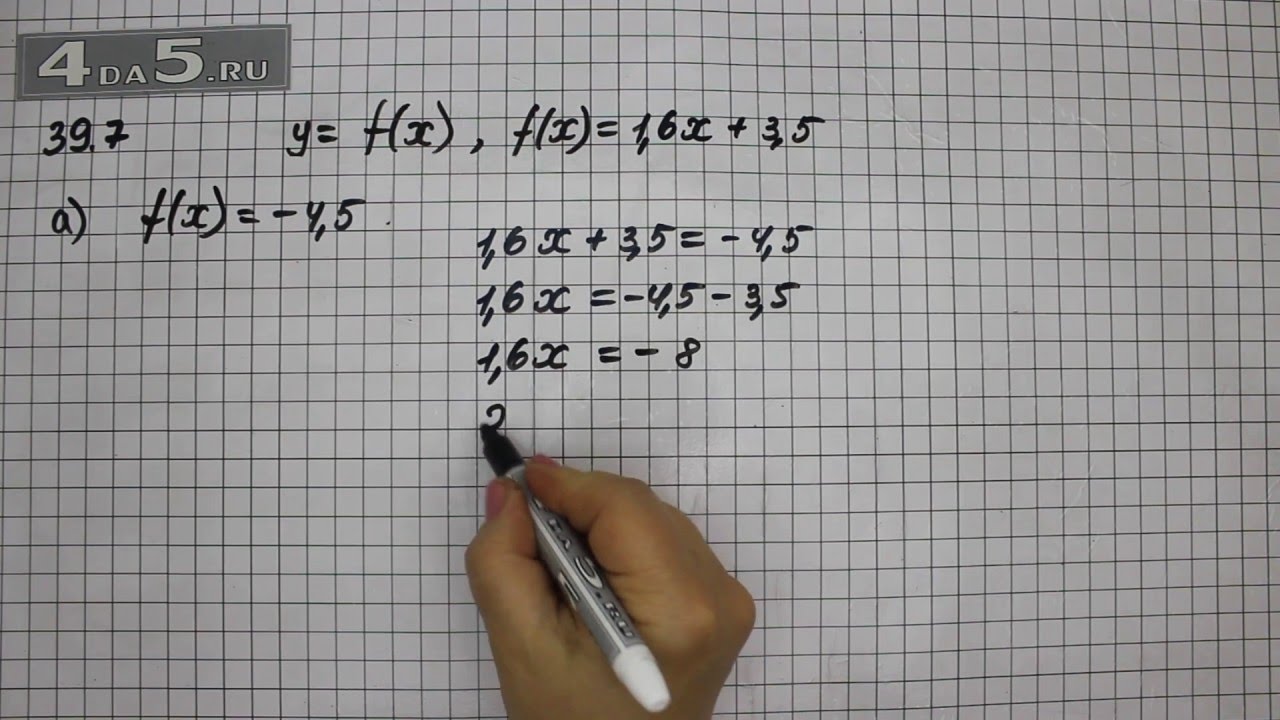 4DA5.RU
39.7 y = f(x), f(x) = 1,6x + 3,5
а) f(x) = -4,5
1,6x + 3,5 = -4,5
1,6x = -4,5 - 3,5
1,6x = - 8